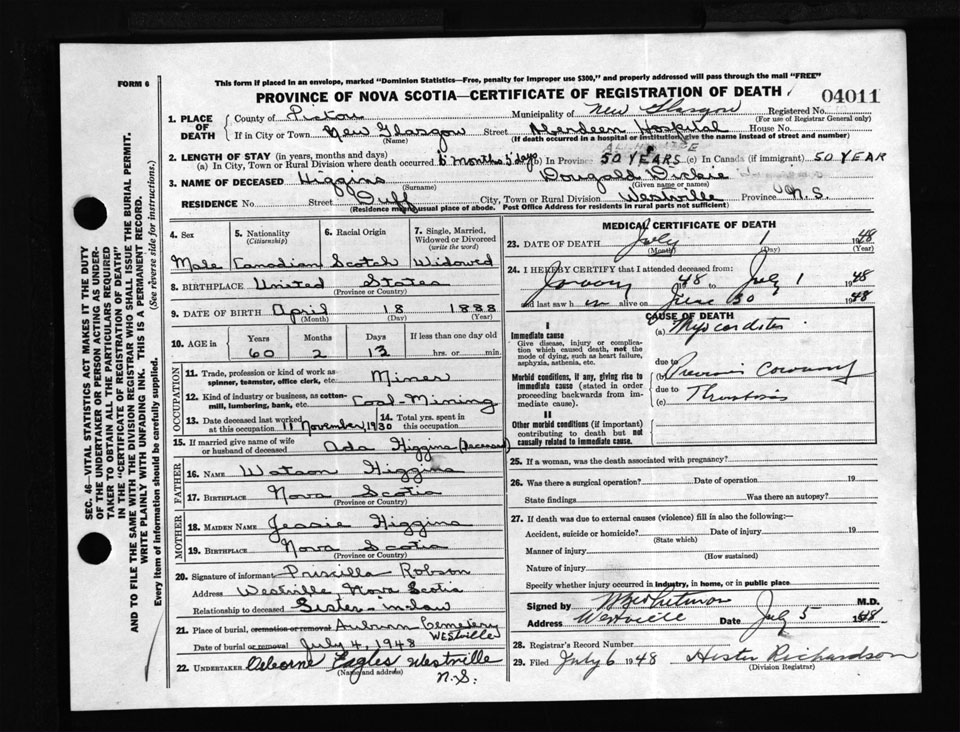 FORM 6
This form if placed in an envelope, marked "Dominion Statistics—Free, penalty for improper use $300," and properly addressed will pass through the mail "FREE"
PROVINCE OF NOVA SCOTIA—CERTIFICATE OF REGISTRATION OF DEATH
04011
1. PLACE OF DEATH
County of Pictou Municipality of New Glasgow Registered No.
(For use of Registrar General only)
If in City or Town New Glasgow Street Aberdeen Hospital House No.
(Name) (If death occurred in a hospital or institution, give name instead of street and number)
2. LENGTH OF STAY (in years, months and days)
(a) In City, Town or Rural Division where death occurred 6 months 5 days (b) In Province 50 YEARS (c) In Canada (if immigrant) 50 YEAR
3. NAME OF DECEASED Higgins Dougald Dickie
(Surname) (Given name or names)
RESIDENCE No. Street Duff City, Town or Rural Division Westville Province N.S.
(Residence means usual place of abode. Post Office Address for residents in rural parts not sufficient)
4. Sex 5. Nationality (Citizenship) 6. Racial Origin 7. Single, Married, Widowed or Divorced (write the word)
Male Canadian Scotch Widowed
8. BIRTHPLACE United States
(Province or Country)
9. DATE OF BIRTH April 18 1888
(Month) (Day) (Year)
10. AGE in Years Months Days If less than one day old
60 2 13 hrs. or min.
OCCUPATION
11. Trade, profession or kind of work as spinner, teamster, office clerk, etc. Miner
12. Kind of industry or business, as cotton-mill, lumbering, bank, etc. Coal-Mining
13. Date deceased last worked at this occupation 11 November 1930 14. Total yrs. spent in this occupation
15. If married give name of wife or husband of deceased Ada Higgins (deceased)
FATHER
16. NAME Watson Higgins
17. BIRTHPLACE Nova Scotia
(Province or Country)
MOTHER
18. MAIDEN NAME Jessie Higgins
19. BIRTHPLACE Nova Scotia
(Province or Country)
20. Signature of informant Priscilla Robson
Address Westville, Nova Scotia
Relationship to deceased Sister-in-law
21. Place of burial, cremation or removal Auburn Cemetery WESTVILLE
Date of burial or removal July 4, 1948
22. UNDERTAKER Osborne Eagles Westville N.S.
(Name and address)
MEDICAL CERTIFICATE OF DEATH
23. DATE OF DEATH July 1 1948
(Month) (Day) (Year)
24. I HEREBY CERTIFY that I attended deceased from:
1948 to July 1 1948
and last saw h im alive on June 30 1948
CAUSE OF DEATH
I
Immediate cause
Give disease, injury or complication which caused death, not the mode of dying, such as heart failure, asphyxia, asthenia, etc.
(a) Myocarditis
due to
Morbid conditions, if any, giving rise to immediate cause (stated in order proceeding backwards from immediate cause).
Previous Coronary
due to
(c) Thrombosis
II
Other morbid conditions (if important) contributing to death but not causally related to immediate cause.
25. If a woman, was the death associated with pregnancy?
26. Was there a surgical operation? Date of operation 19
State findings Was there an autopsy?
27. If death was due to external causes (violence) fill in also the following:—
Accident, suicide or homicide? Date of injury 19
(State which)
Manner of injury
(How sustained)
Nature of injury
Specify whether injury occurred in industry, in home, or in public place
Signed by M.D.
Address Westville Date July 5 1948
28. Registrar's Record Number
29. Filed July 6 1948 Hester Richardson
(Division Registrar)
SEC. 46—VITAL STATISTICS ACT MAKES IT THE DUTY
OF THE UNDERTAKER OR PERSON ACTING AS UNDER-
TAKER TO OBTAIN ALL THE PARTICULARS REQUIRED
IN THE "CERTIFICATE OF REGISTRATION OF DEATH"
AND TO FILE THE SAME WITH THE DIVISION REGISTRAR WHO SHALL ISSUE THE BURIAL PERMIT.
WRITE PLAINLY WITH UNFADING INK. THIS IS A PERMANENT RECORD.
Every item of information should be carefully supplied. (See reverse side for instructions.)